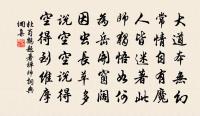 大道本無幻
常情自有魔
人皆迷著此
師獨悟如何
為岳開窗闊
因虫長草多
說空空說得
空得到維摩
杜荀鶴題著禪師詞典
網集